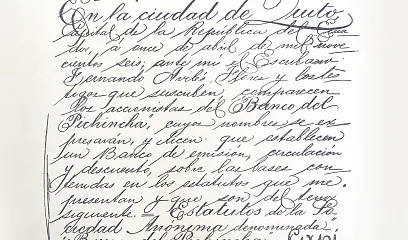 En la ciudad de Quito
Capital de la República del Ecua
dor, a once de abril de mil nove
cientos seis; ante mí el Escribano
Fernando Avilés Flores y los tes
tigos que suscriben, comparecen
los accionistas del "Banco del
Pichincha", cuyos nombres se ex
presarán, y dicen: que establecen
un Banco de emisión, circulación
y descuento, sobre las bases con
tenidas en los estatutos que me
presentan y que son del tenor
siguiente = "Estatutos de la So
ciedad Anónima denominada